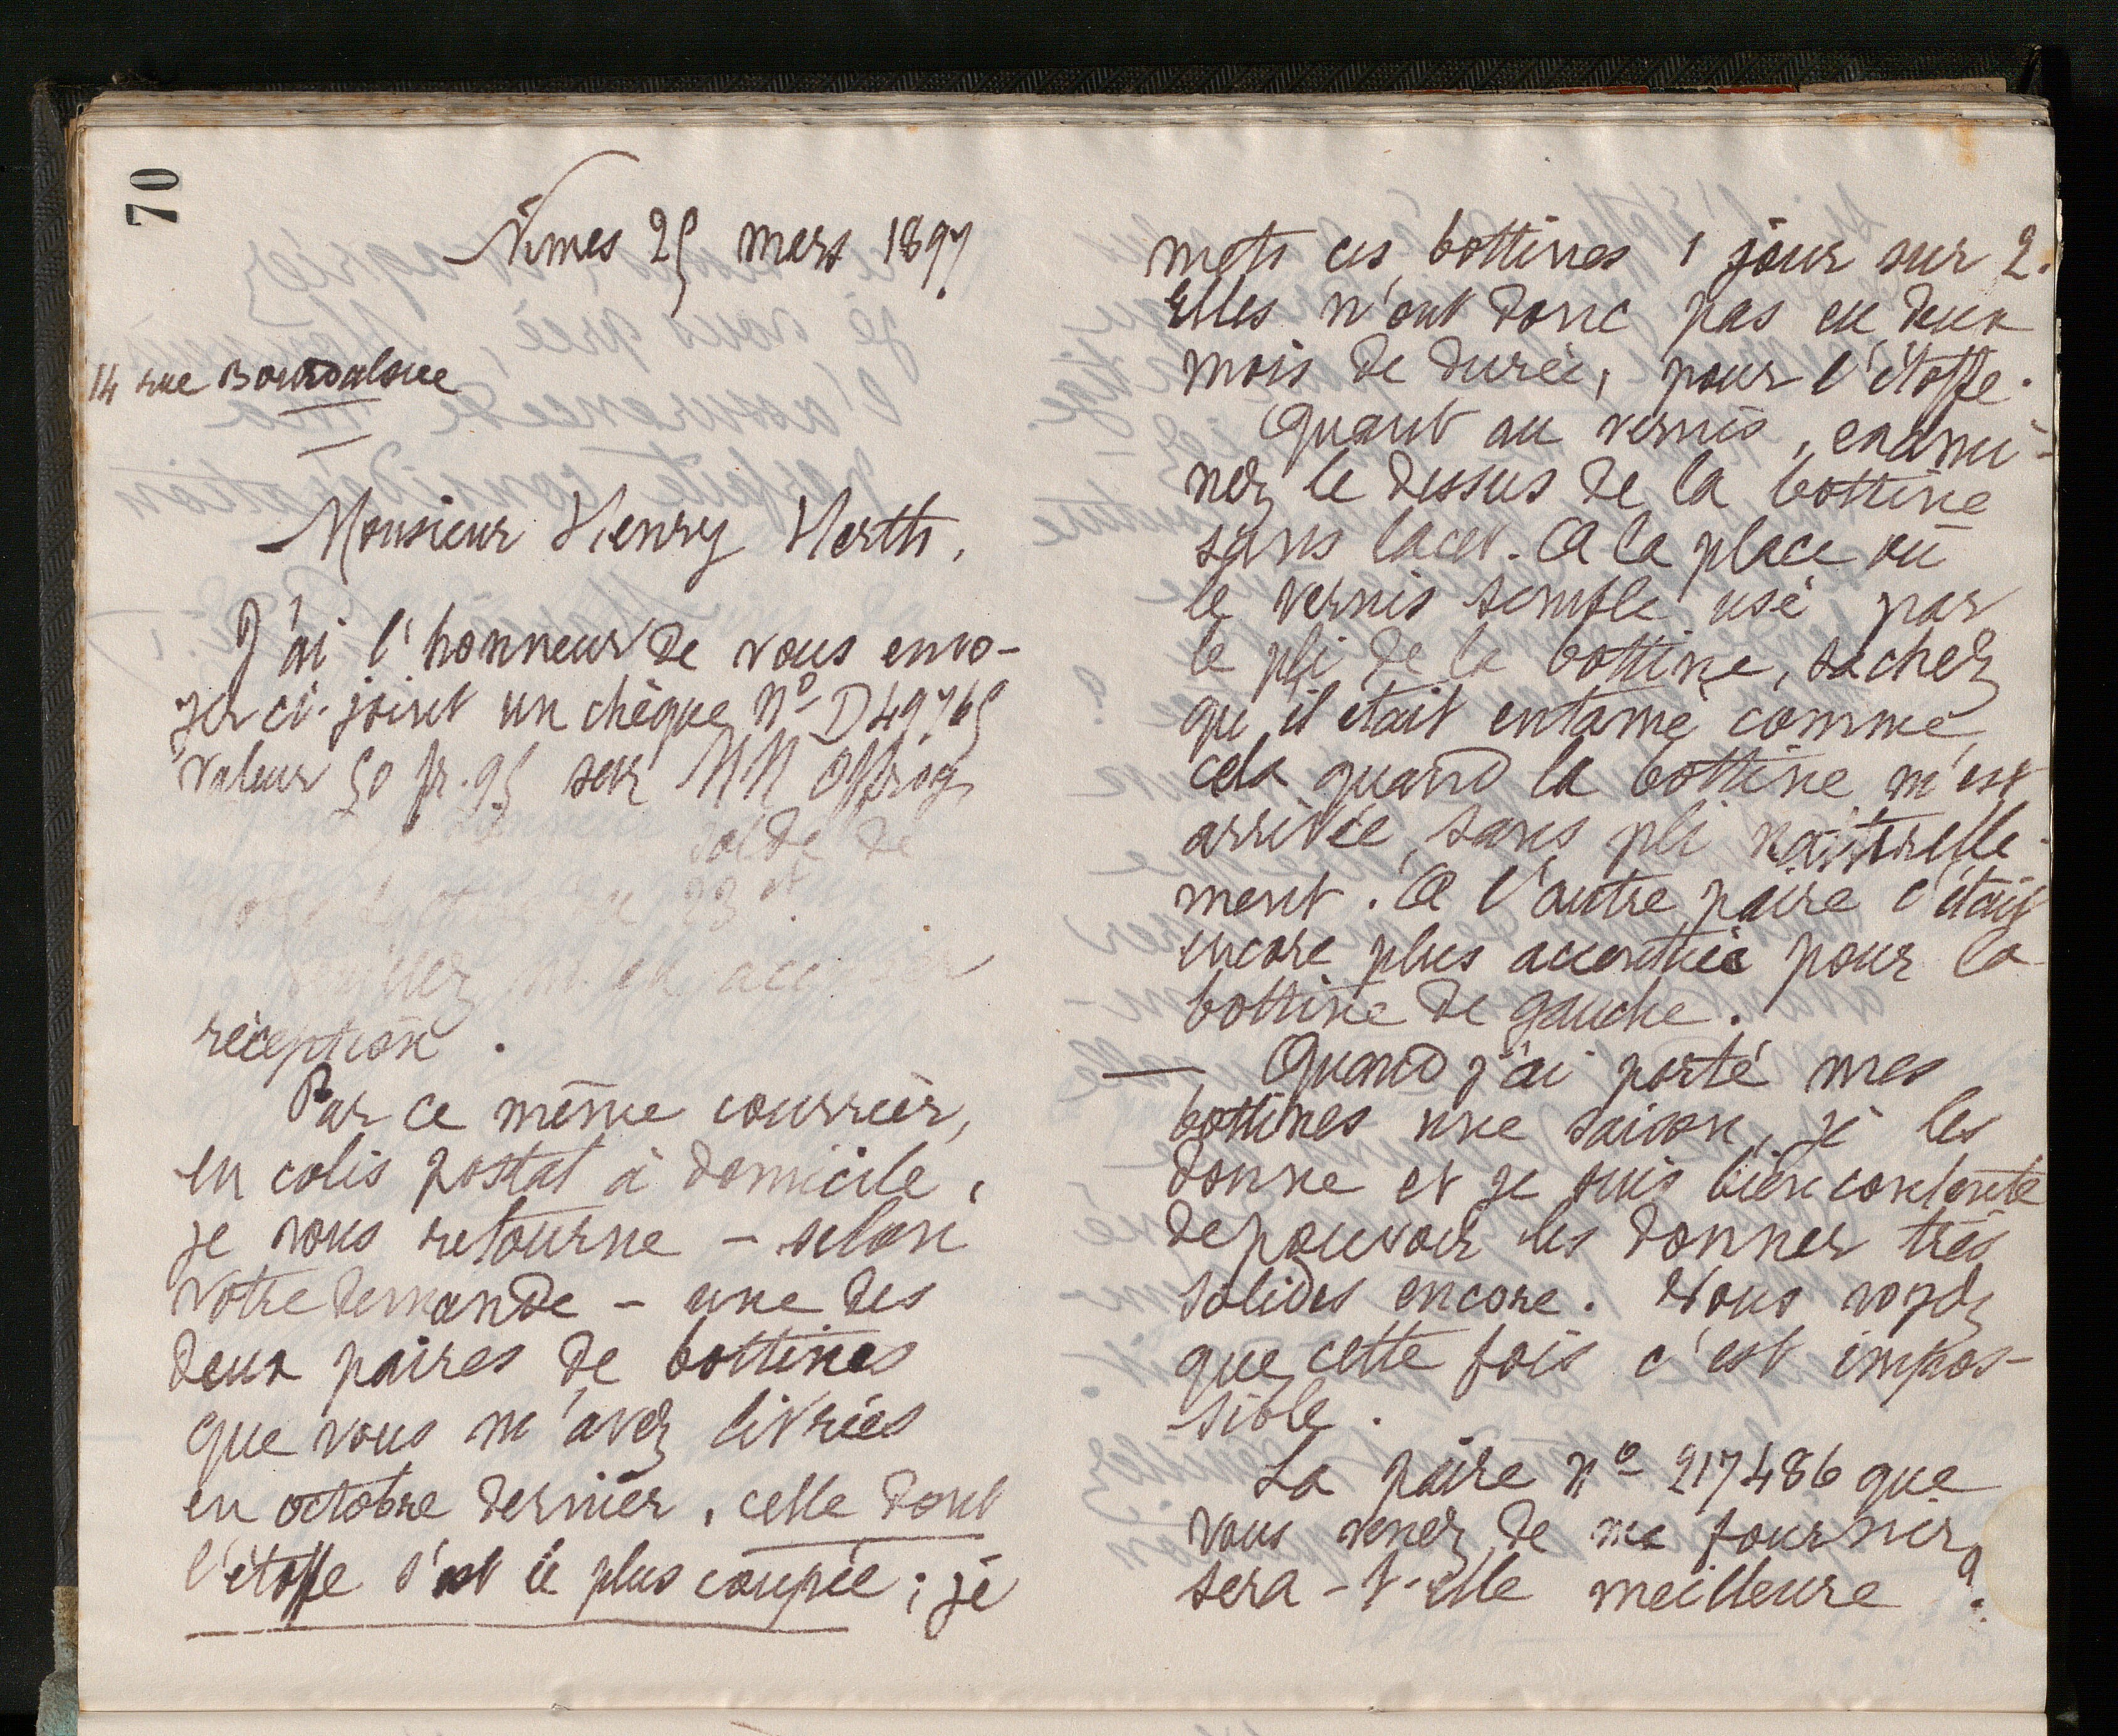 70
Nîmes 25 mars 1897
14 rue Bourdaloue
Monsieur Henry Herth.
J'ai l'honneur de vous envo-
yer ci-joint un chèque No D49765
valeur 50 fr. 95 sur MM
solde de
23 ct
Veuillez m'en
réception.
Par ce même courrier,
en colis postal à domicile,
je vous retourne – selon
votre demande – une des
deux paires de bottines
que vous m'avez livrées
en octobre dernier, celle dont
l'étoffe s'est le plus coupée; je
mets ces bottines 1 jour sur 2.
Elles n'ont donc pas eu deux
mois de durée, pour l'étoffe.
Quant au vernis, exami-
nez le dessus de la bottine
sans lacet. A la place où
le vernis semble usé par
le pli de la bottine, sachez
qu'il était entamé comme
cela quand la bottine m'est
arrivée, sans pli naturelle-
ment. A l'autre paire c'était
encore plus accentué pour la
bottine de gauche.
— Quand j'ai porté mes
bottines une saison, je les
donne et je suis bien contente
de pouvoir les donner très
solides encore. Vous voyez
que cette fois c'est impos-
sible.
La paire No 217486 que
vous venez de me fournir
sera-t-elle meilleure?